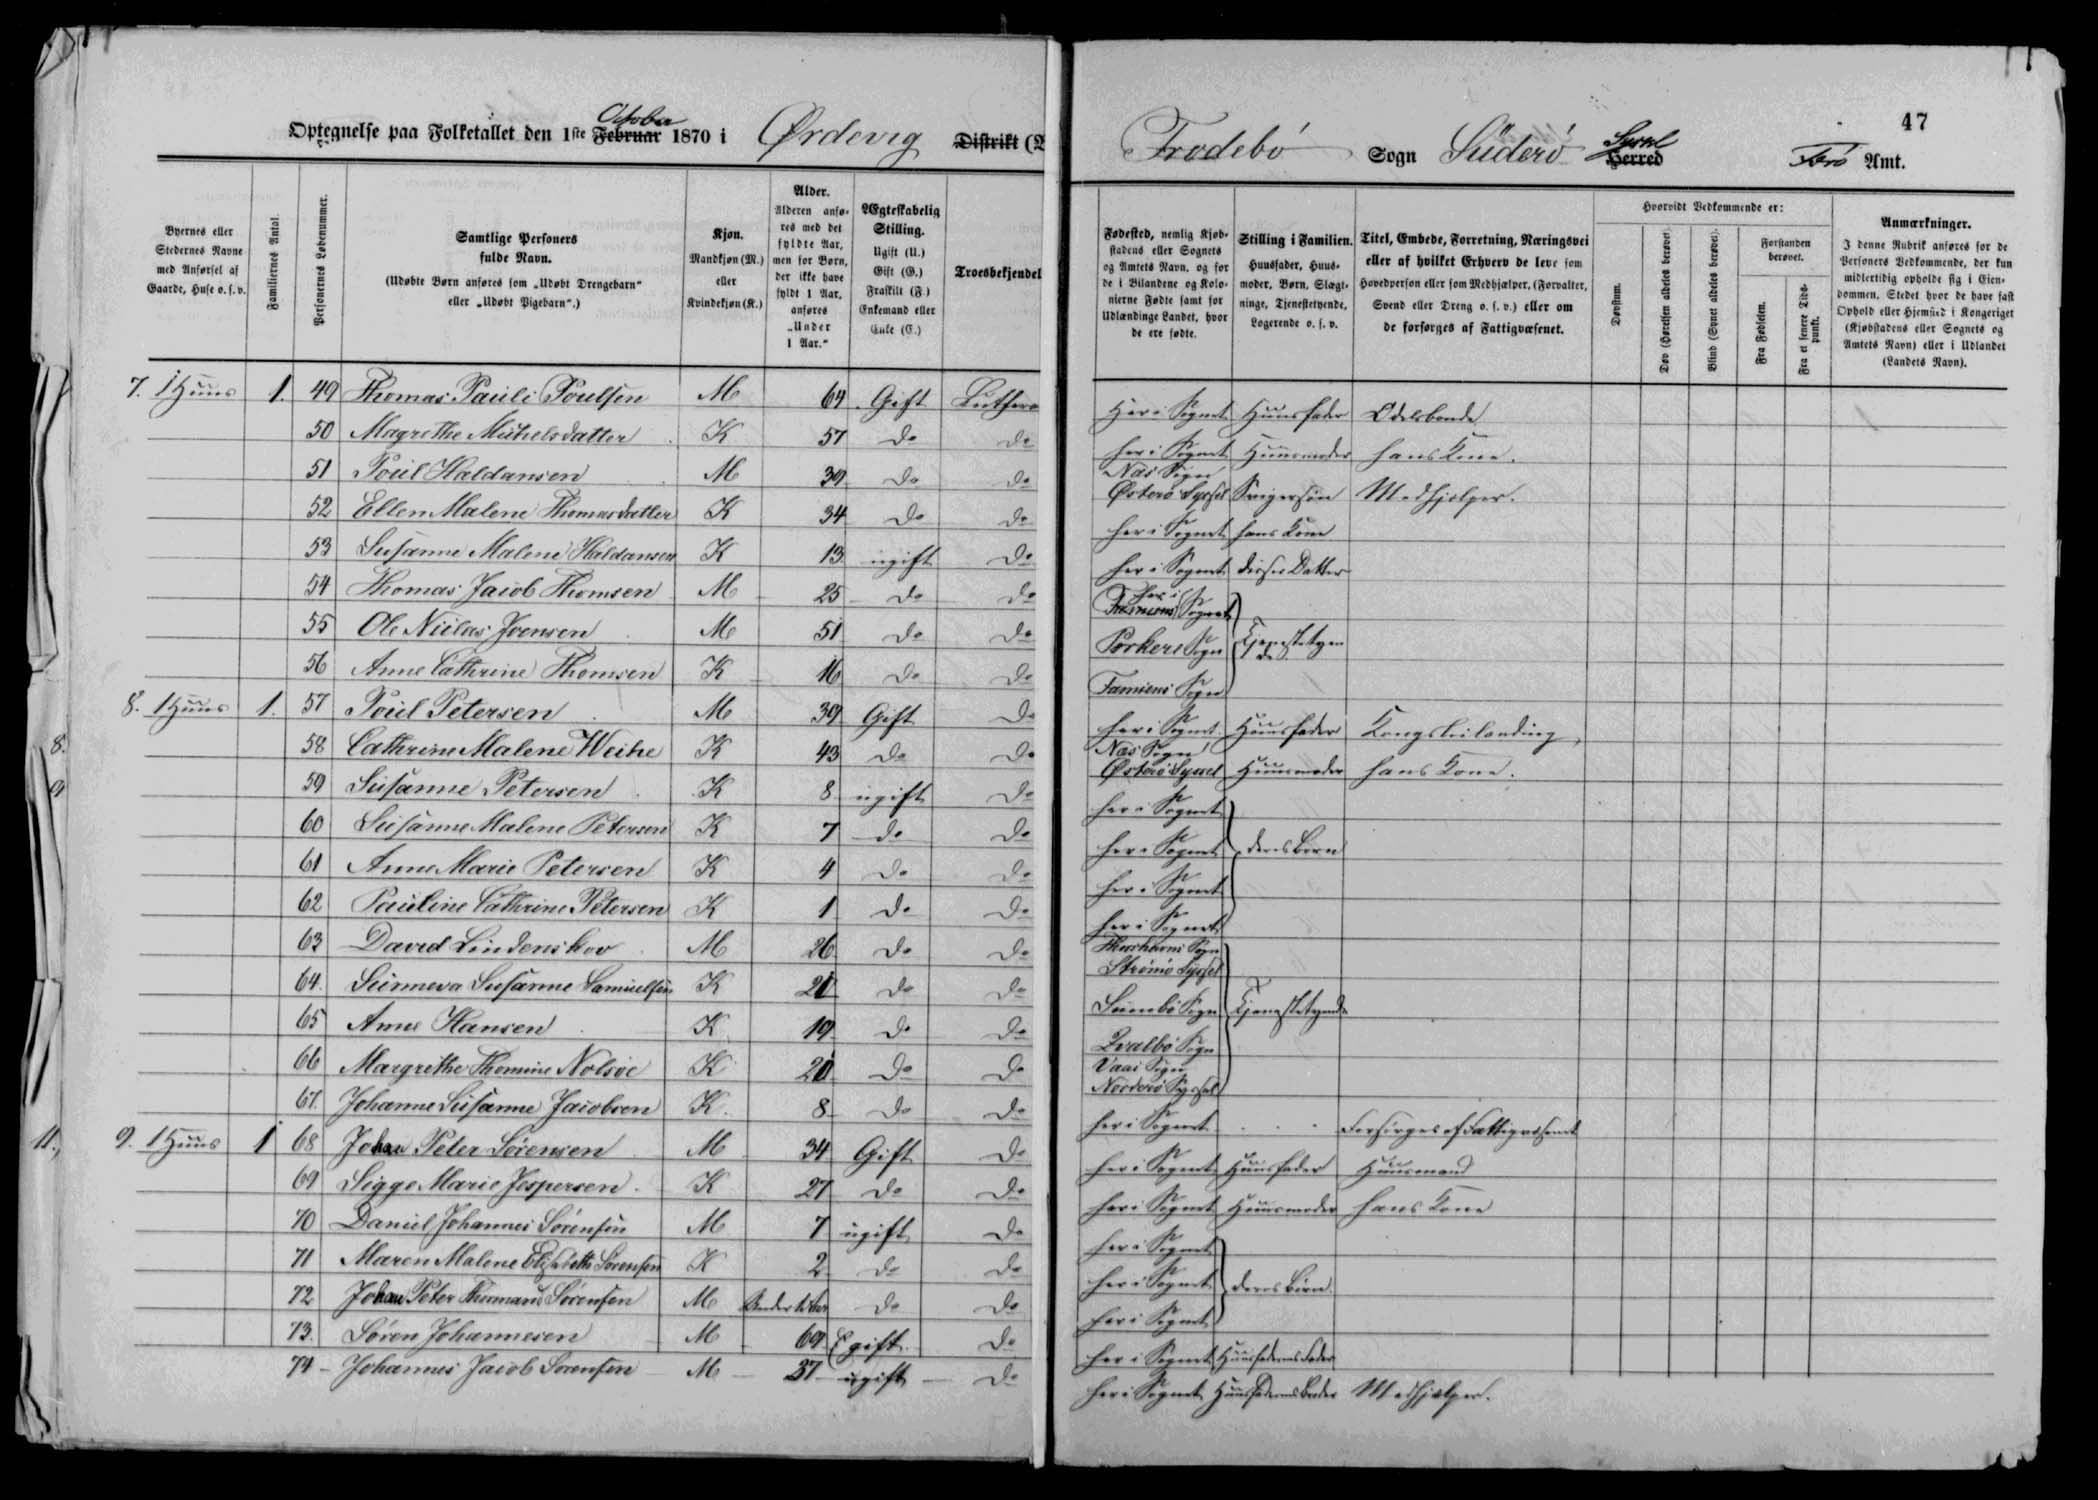 47
Optegnelse paa Folketallet den 1ste Februar October 1870 i Ørdevig Distrikt
Frodebö Sogn Süderö Herred Syssel Færö Amt.
Byernes eller Stedernes Navne med Anførsel af Gaarde, Huse o. s. v.
Familiernes Antal.
Personernes Løbenummer.
Samtlige Personers fulde Navn.
(Udøbte Børn anføres som „Udøbt Drengebarn“ eller „Udøbt Pigebarn“.)
Kjøn.
Mandkjøn (M.) eller Kvindekjøn (K.)
Alder.
Alderen anføres med det fyldte Aar, men for Børn, der ikke have fyldt 1 Aar, anføres „Under 1 Aar.“
Ægteskabelig Stilling.
Ugift (U.) Gift (G.) Fraskilt (F.) Enkemand eller Enke (E.)
Troesbekjendel
Fødested, nemlig Kjøbstadens eller Sognets og Amtets Navn, og for de i Bilandene og Kolonierne Fødte samt for Udlændinge Landet, hvor de ere fødte.
Stilling i Familien.
Huusfader, Huusmoder, Børn, Slægtninge, Tjenestetyende, Logerende o. s. v.
Titel, Embede, Forretning, Næringsvei eller af hvilket Erhverv de leve som Hovedperson eller som Medhjælper, (Forvalter, Svend eller Dreng o. s. v.) eller om de forsørges af Fattigvæsenet.
Hvorvidt Vedkommende er:
Døvstum.
Døv (Hørelsen aldeles berøvet).
Blind (Synet aldeles berøvet).
Forstanden berøvet.
Fra Fødselen.
Fra et senere Tidspunkt.
Anmærkninger.
I denne Rubrik anføres for de Personers Vedkommende, der kun midlertidig opholde sig i Eiendommen, Stedet hvor de have fast Ophold eller Hjemsted i Kongeriget (Kjøbstadens eller Sognets og Amtets Navn) eller i Udlandet (Landets Navn).
7. 1 Huus 1. 49 Thomas Pauli Poulsen M 64 Gift Luthera Her i Sognet Huusfader Odelsbonde
50 Magrethe Michelsdatter K 57 do do her i Sognet Huusmoder hans Kone.
51 Poul Haldansen M 39 do do Næs Sogn Østerö Syssel Svigersön Medhjelper.
52 Ellen Malene Thomasdatter K 34 do do her i Sognet hans Kone
53 Susanne Malene Haldansen K 13 ugift do her i Sognet disses Datter
54 Thomas Jacob Thomsen M 25 do do her i Famiens Sognet
55 Ole Niclas Joensen M 51 do do Porkere Sogn Tjenestetyende
56 Anne Cathrine Thomsen K 16 do do Famiens Sogn
8. 1 Huus 1. 57 Poul Petersen M 39 Gift do her i Sognet Huusfader Kongsleilending
8. 58 Cathrine Malene Weihe K 43 do do Næs Sogn Østerö Syssel Huusmoder hans Kone.
9 59 Susanne Petersen K 8 ugift do her i Sognet
60 Susanne Malene Petersen K 7 do do her i Sognet deres Børn
61 Anne Marie Petersen K 4 do do her i Sognet
62 Pauline Cathrine Petersen K 1 do do her i Sognet
63 David Lindenskov M 26 do do Thorshavns Sogn Strømö Syssel
64. Sunneva Susanne Samuelsen K 21 do do Sumbö Sogn Tjenestetyende
65 Anne Hansen K 19 do do Qvalbö Sogn
66 Margrethe Thomine Nolsöe K 20 do do Vaas Sogn Norderö Syssel
67. Johanne Susanne Jacobsen K 8 do do her i Sognet Forsörges af Fattigvæsenet
11. 9. 1 Huus 1 68 Johan Peter Sörensen M 34 Gift do her i Sognet Huusfader Huusmand
69 Sigge Marie Jespersen K 27 do do her i Sognet Huusmoder hans Kone
70 Daniel Johannes Sörensen M 7 ugift do her i Sognet
71 Maren Malene Elisabeth Sörensen K 2 do do her i Sognet deres Børn.
72 Johan Peter Thomand Sörensen M Under 1 Aar do do her i Sognet
73. Sören Johannesen M 69 E gift do her i Sognet Huusfaderens Fader
74 - Johannes Jacob Sörensen M 27 ugift do her i Sognet Huusfaderens Broder Medhjælper.